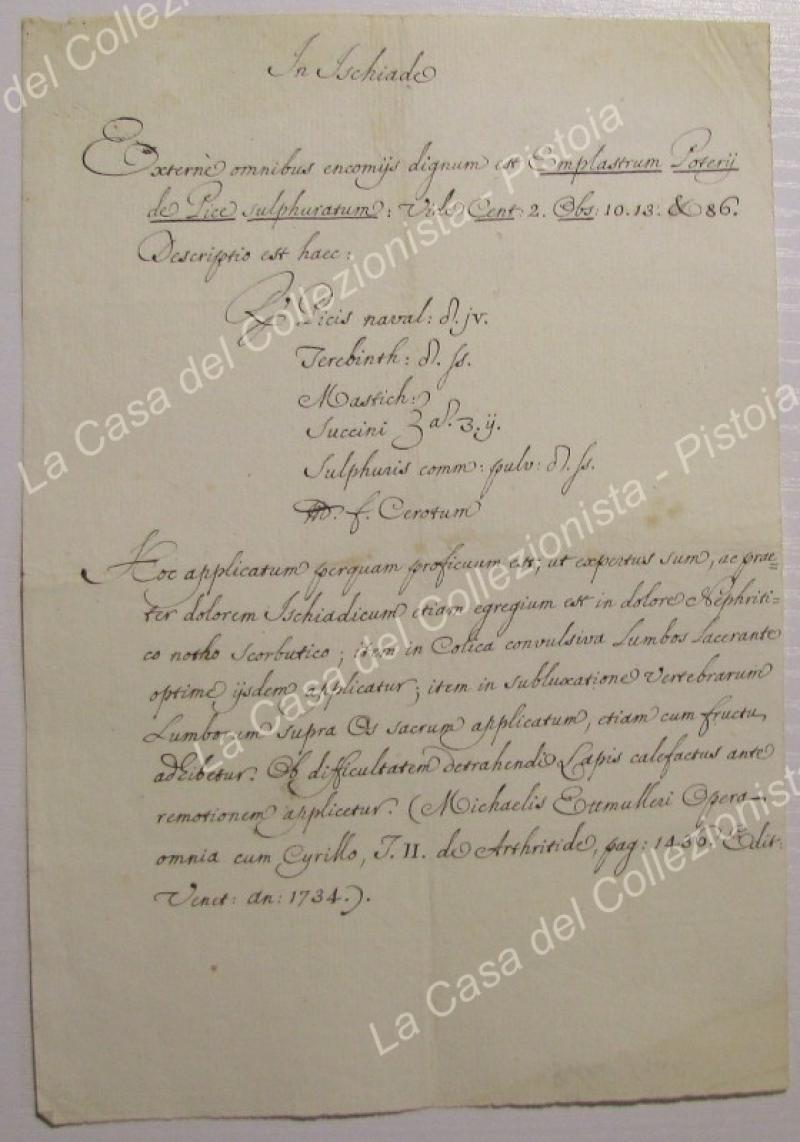 In Ischiade
Externè omnibus encomijs dignum est Emplastrum Poterij
de Pice sulphuratum: Vide Cent: 2. Obs: 10. 13. & 86.
Descriptio est haec:
℞ Picis naval: ℥. jv.
Terebinth: ℥. ſs.
Mastich:
Succini } a℥. ʒ. ij.
Sulphuris comm: pulv: ℥. ſs.
M. f. Cerotum
Hoc applicatum perquam proficuum est; ut expertus sum, ac prae=
ter dolorem Ischiadicum etiam egregium est in dolore Nephriti=
co notho scorbutico; item in Colica convulsiva Lumbos Lacerante
optime ijsdem applicatur; item in subluxatione vertebrarum
Lumborum supra Os sacrum applicatum, etiam cum fructu
adhibetur. Ob difficultatem detrahendi Lapis calefactus ante
remotionem applicetur. (Michaelis Ettmulleri Opera
omnia cum Cyrillo, T. II. de Arthritide, pag: 1436. Edit:
Venet: an: 1734.).
La Casa del Collezionista - Pistoia
La Casa del Collezionista - Pistoia
La Casa del Collezionista - Pistoia